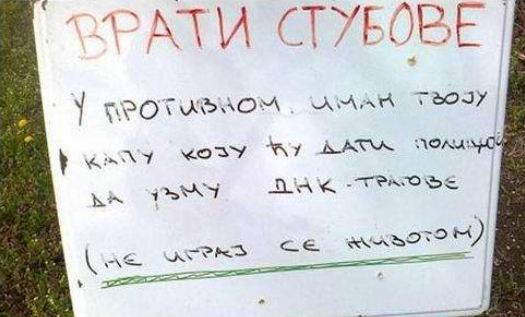 ВРАТИ СТУБОВЕ
У ПРОТИВНОМ, ИМАМ ТВОЈУ
КАПУ КОЈУ ЋУ ДАТИ ПОЛИЦИЈИ
ДА УЗМУ ДНК-ТРАГОВЕ
(НЕ ИГРАЈ СЕ ЖИВОТОМ)